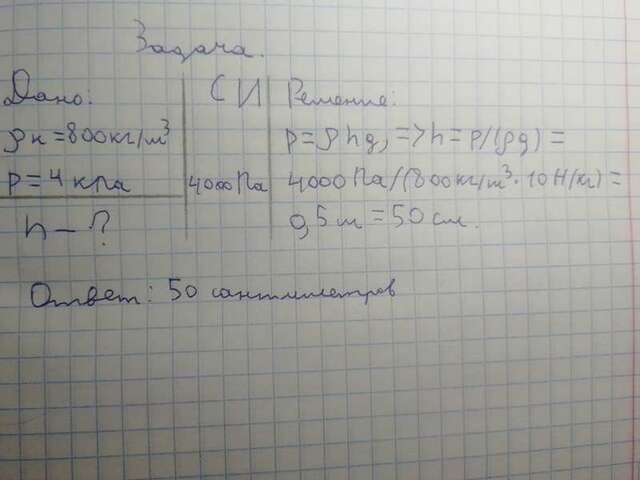 Задача.
Дано:
ρк = 800кг/м³
p = 4 кпа
h - ?
СИ
4000Па
Решение:
p = ρhg, => h = p/(ρg) =
4000Па/(800кг/м³ · 10Н/кг) =
0,5м = 50 см.
Ответ: 50 сантиметров